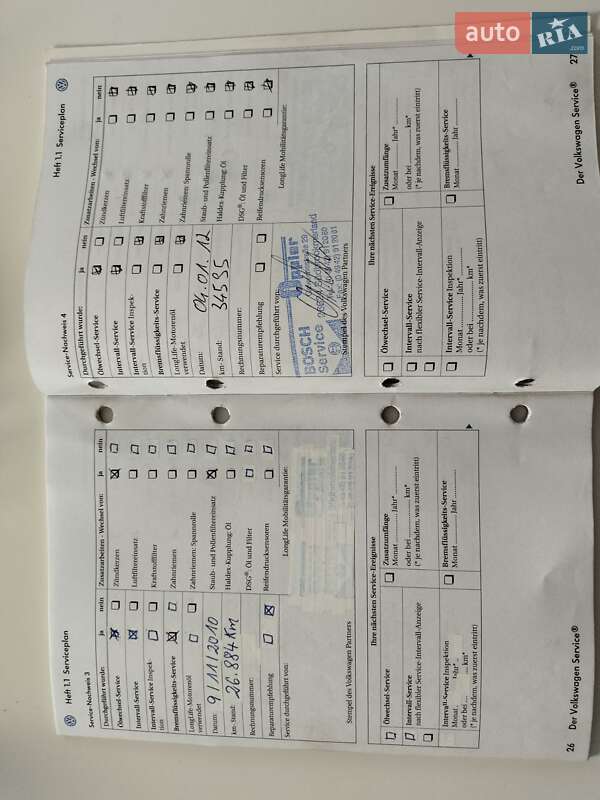 auto RIA.com
Heft 1.1 Serviceplan
Service-Nachweis 3
Durchgeführt wurde: ja nein
Ölwechsel-Service
Intervall-Service
Intervall-Service Inspek-
tion
Bremsflüssigkeits-Service
LongLife-Motorenöl
verwendet
Datum: 9/11/2010
km-Stand: 26.884 Km
Rechnungsnummer:
Reparaturempfehlung
Service durchgeführt von:
Stempel des Volkswagen Partners
Zusatzarbeiten - Wechsel von: ja nein
Zündkerzen
Luftfiltereinsatz
Kraftstofffilter
Zahnriemen
Zahnriemen: Spannrolle
Staub- und Pollenfiltereinsatz
Haldex-Kupplung: Öl
DSG®: Öl und Filter
Reifendrucksensoren
LongLife Mobilitätsgarantie:
Ihre nächsten Service-Ereignisse
Ölwechsel-Service
Intervall-Service
nach flexibler Service-Intervall-Anzeige
Intervall-Service Inspektion
Monat Jahr*
oder bei km*
(* je nachdem, was zuerst eintritt)
Zusatzumfänge
Monat Jahr*
oder bei km*
(* je nachdem, was zuerst eintritt)
Bremsflüssigkeits-Service
Monat Jahr
26 Der Volkswagen Service®
Heft 1.1 Serviceplan
Service-Nachweis 4
Durchgeführt wurde: ja nein
Ölwechsel-Service
Intervall-Service
Intervall-Service Inspek-
tion
Bremsflüssigkeits-Service
LongLife-Motorenöl
verwendet
Datum: 04.01.12
km-Stand: 34535
Rechnungsnummer:
Reparaturempfehlung
Service durchgeführt von:
BOSCH
Service
Stempel des Volkswagen Partners
Zusatzarbeiten - Wechsel von: ja nein
Zündkerzen
Luftfiltereinsatz
Kraftstofffilter
Zahnriemen
Zahnriemen: Spannrolle
Staub- und Pollenfiltereinsatz
Haldex-Kupplung: Öl
DSG®: Öl und Filter
Reifendrucksensoren
LongLife Mobilitätsgarantie:
Ihre nächsten Service-Ereignisse
Ölwechsel-Service
Intervall-Service
nach flexibler Service-Intervall-Anzeige
Intervall-Service Inspektion
Monat Jahr*
oder bei km*
(* je nachdem, was zuerst eintritt)
Zusatzumfänge
Monat Jahr*
oder bei km*
(* je nachdem, was zuerst eintritt)
Bremsflüssigkeits-Service
Monat Jahr
Der Volkswagen Service® 27